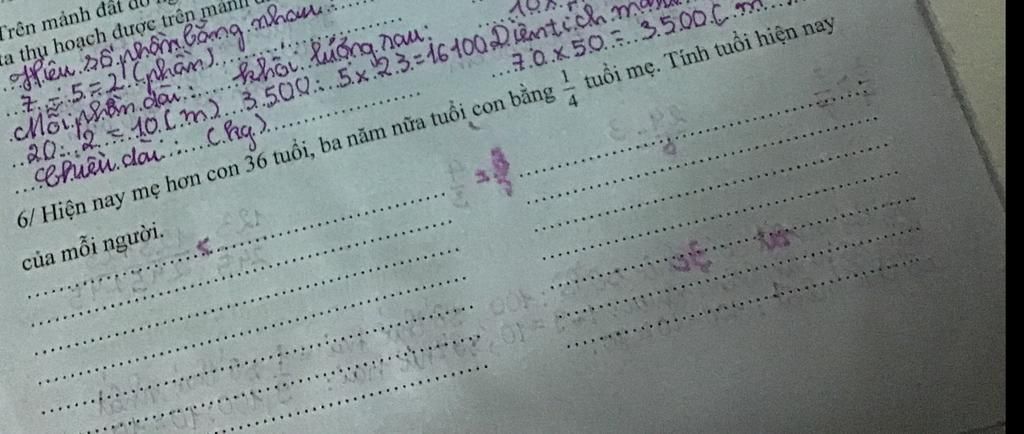 Trên mảnh đất đó
ta thu hoạch được trên mảnh
Hiệu số phần bằng nhau:
7 - 5 = 2 (phần)
Mỗi phần dài:
20 : 2 = 10 (m)
Chiều dài:
10 x
Diện tích mảnh
70 x 50 = 3500 (m
Khối lượng rau:
3500 : 5 x 23 = 16100
(kg)
6/ Hiện nay mẹ hơn con 36 tuổi, ba năm nữa tuổi con bằng 1/4 tuổi mẹ. Tính tuổi hiện nay
của mỗi người.